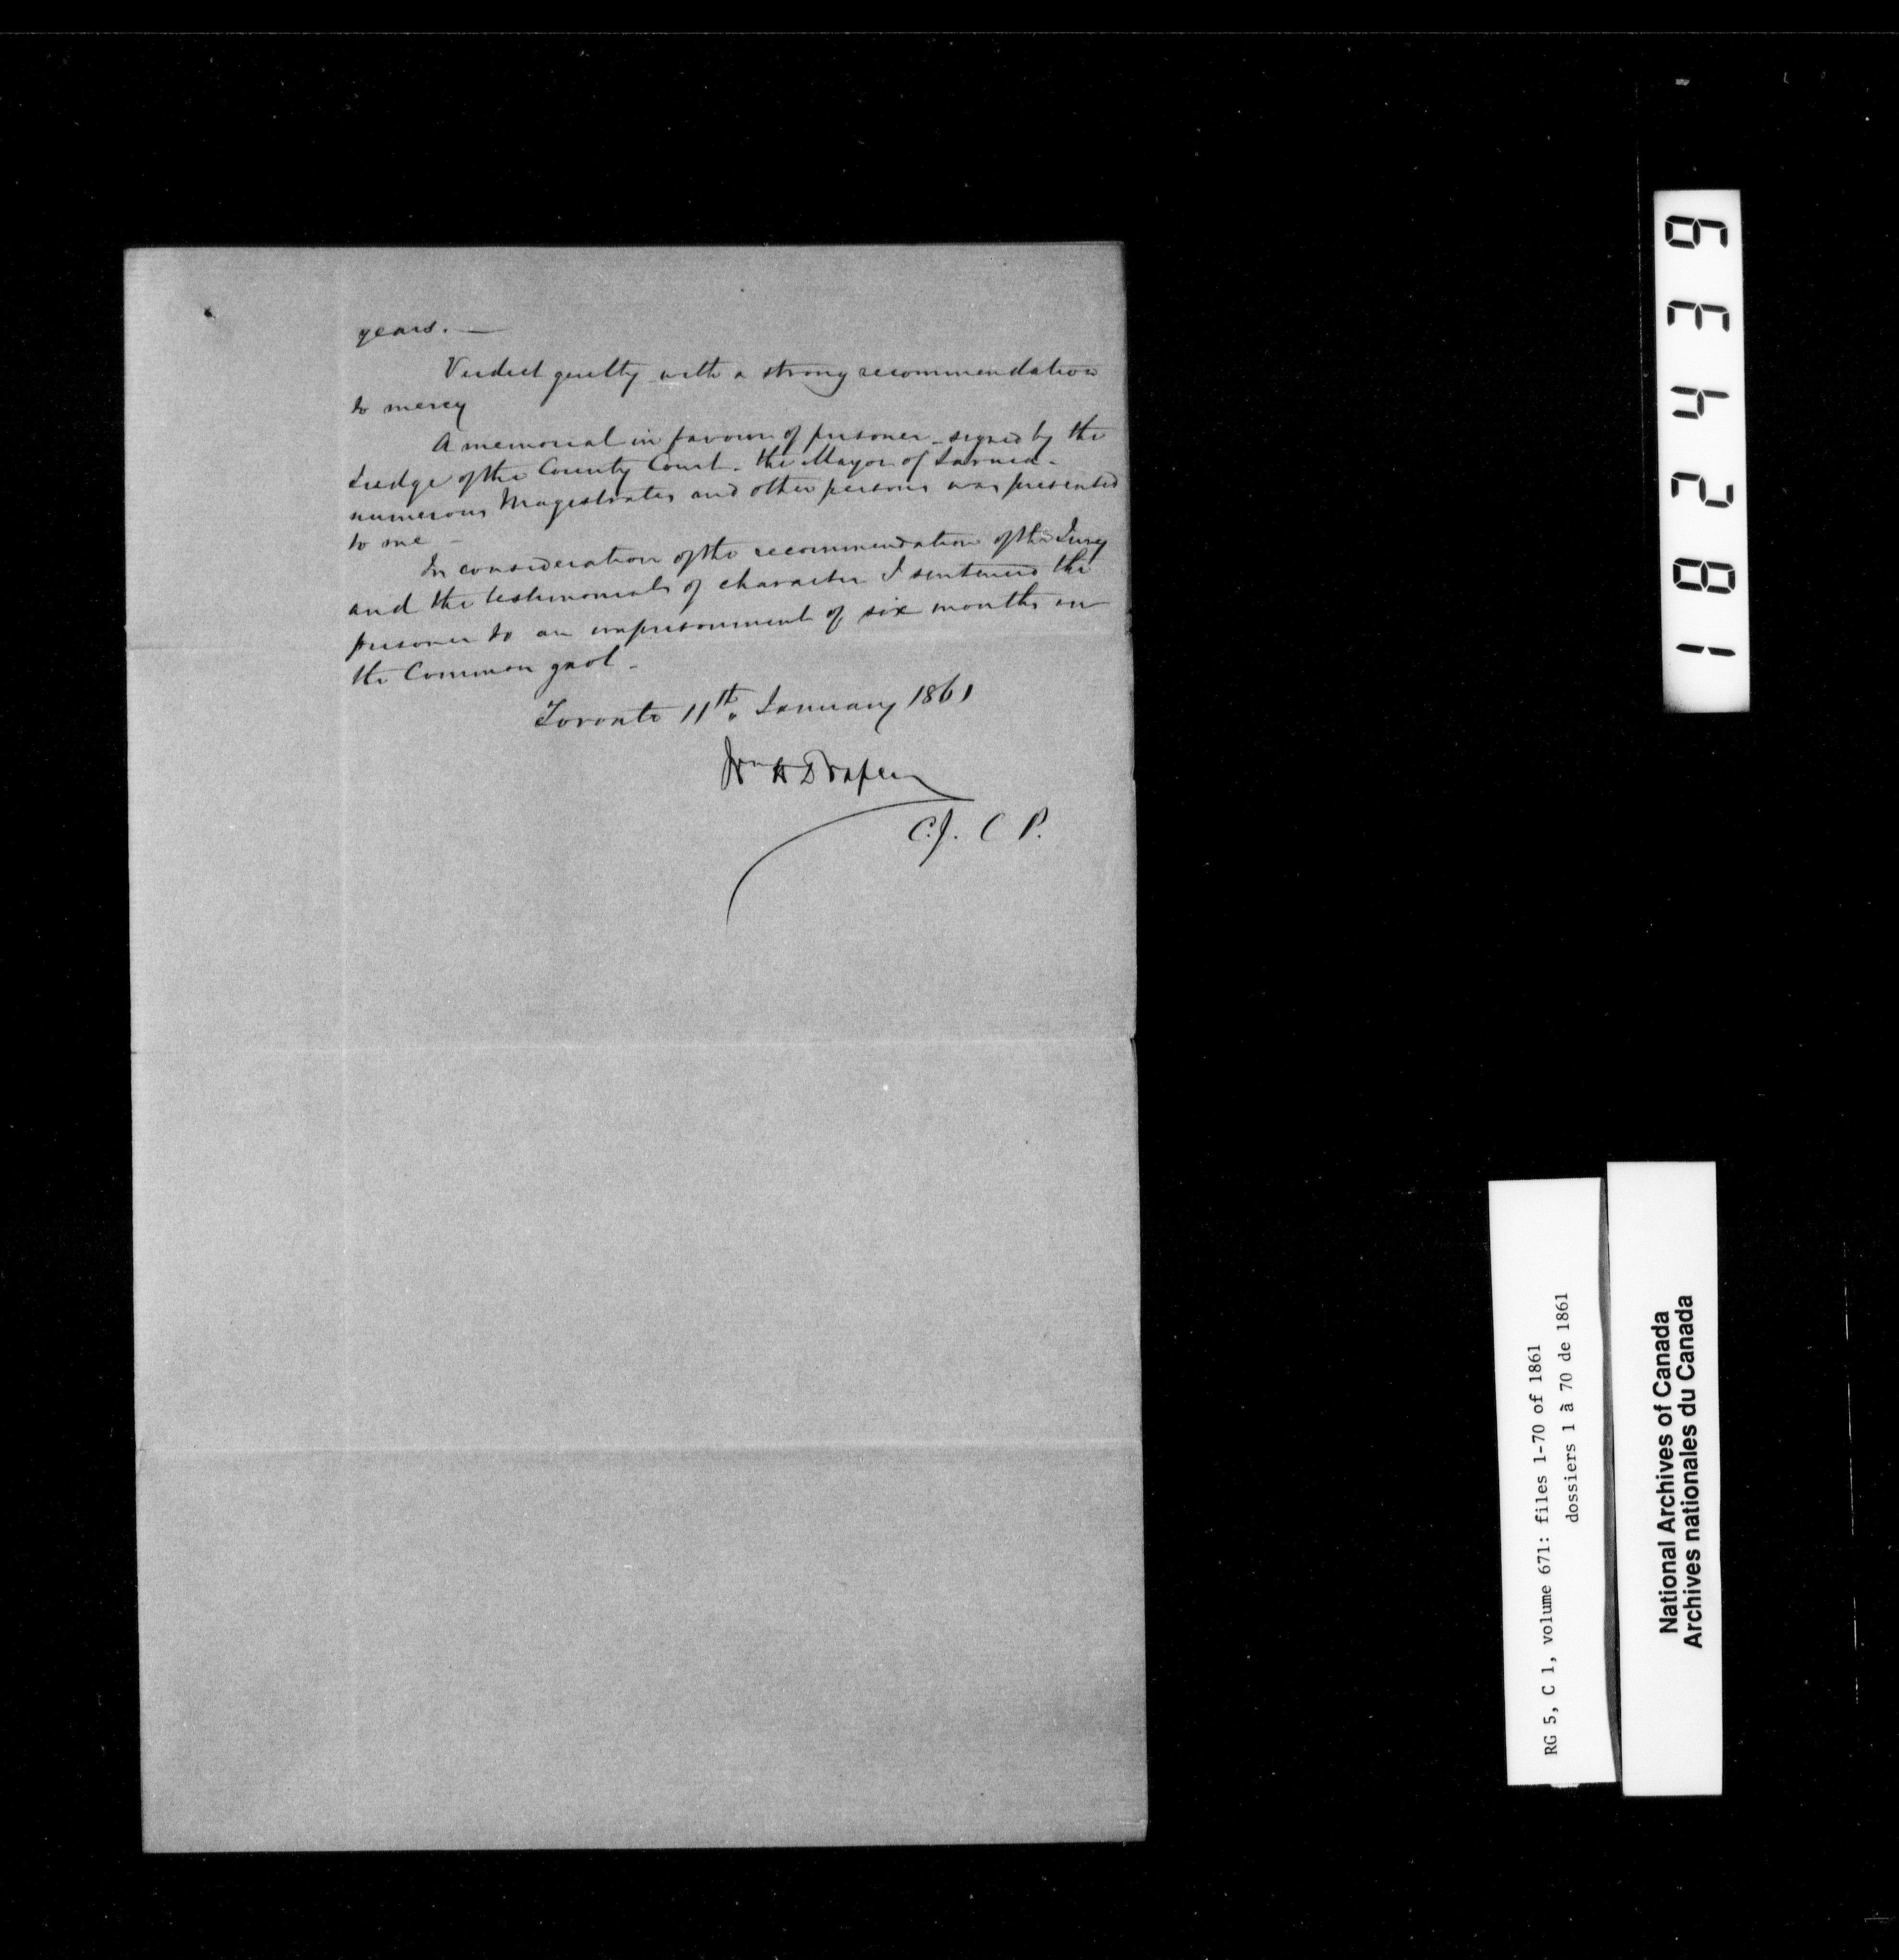 years. —
Verdict guilty with a strong recommendation
to mercy
A memorial in favour of prisoner - signed by the
Judge of the County Court - the Mayor of Sarnia -
numerous Magistrates and other persons was presented
to me -
In consideration of the recommendation of the Jury
and the testimonials of character I sentenced the
prisoner to an imprisonment of six months in
the Common gaol -
Toronto 11th January 1861
Wm H Draper
C.J. C P.
182439
RG 5, C 1, volume 671: files 1-70 of 1861
dossiers 1 à 70 de 1861
National Archives of Canada
Archives nationales du Canada